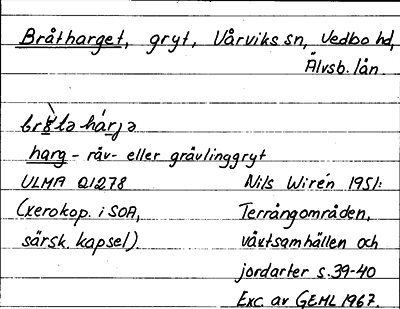 Bråtharget, gryt, Vårviks sn, Vedbo hd,
Älvsb. län.
harg - räv- eller grävlinggryt
ULMA 21278 Nils Wirén 1951:
(xerokop. i SOA, Terrängområden,
särsk. kapsel) växtsamhällen och
jordarter s. 39-40
Exc. av GEHL 1967.